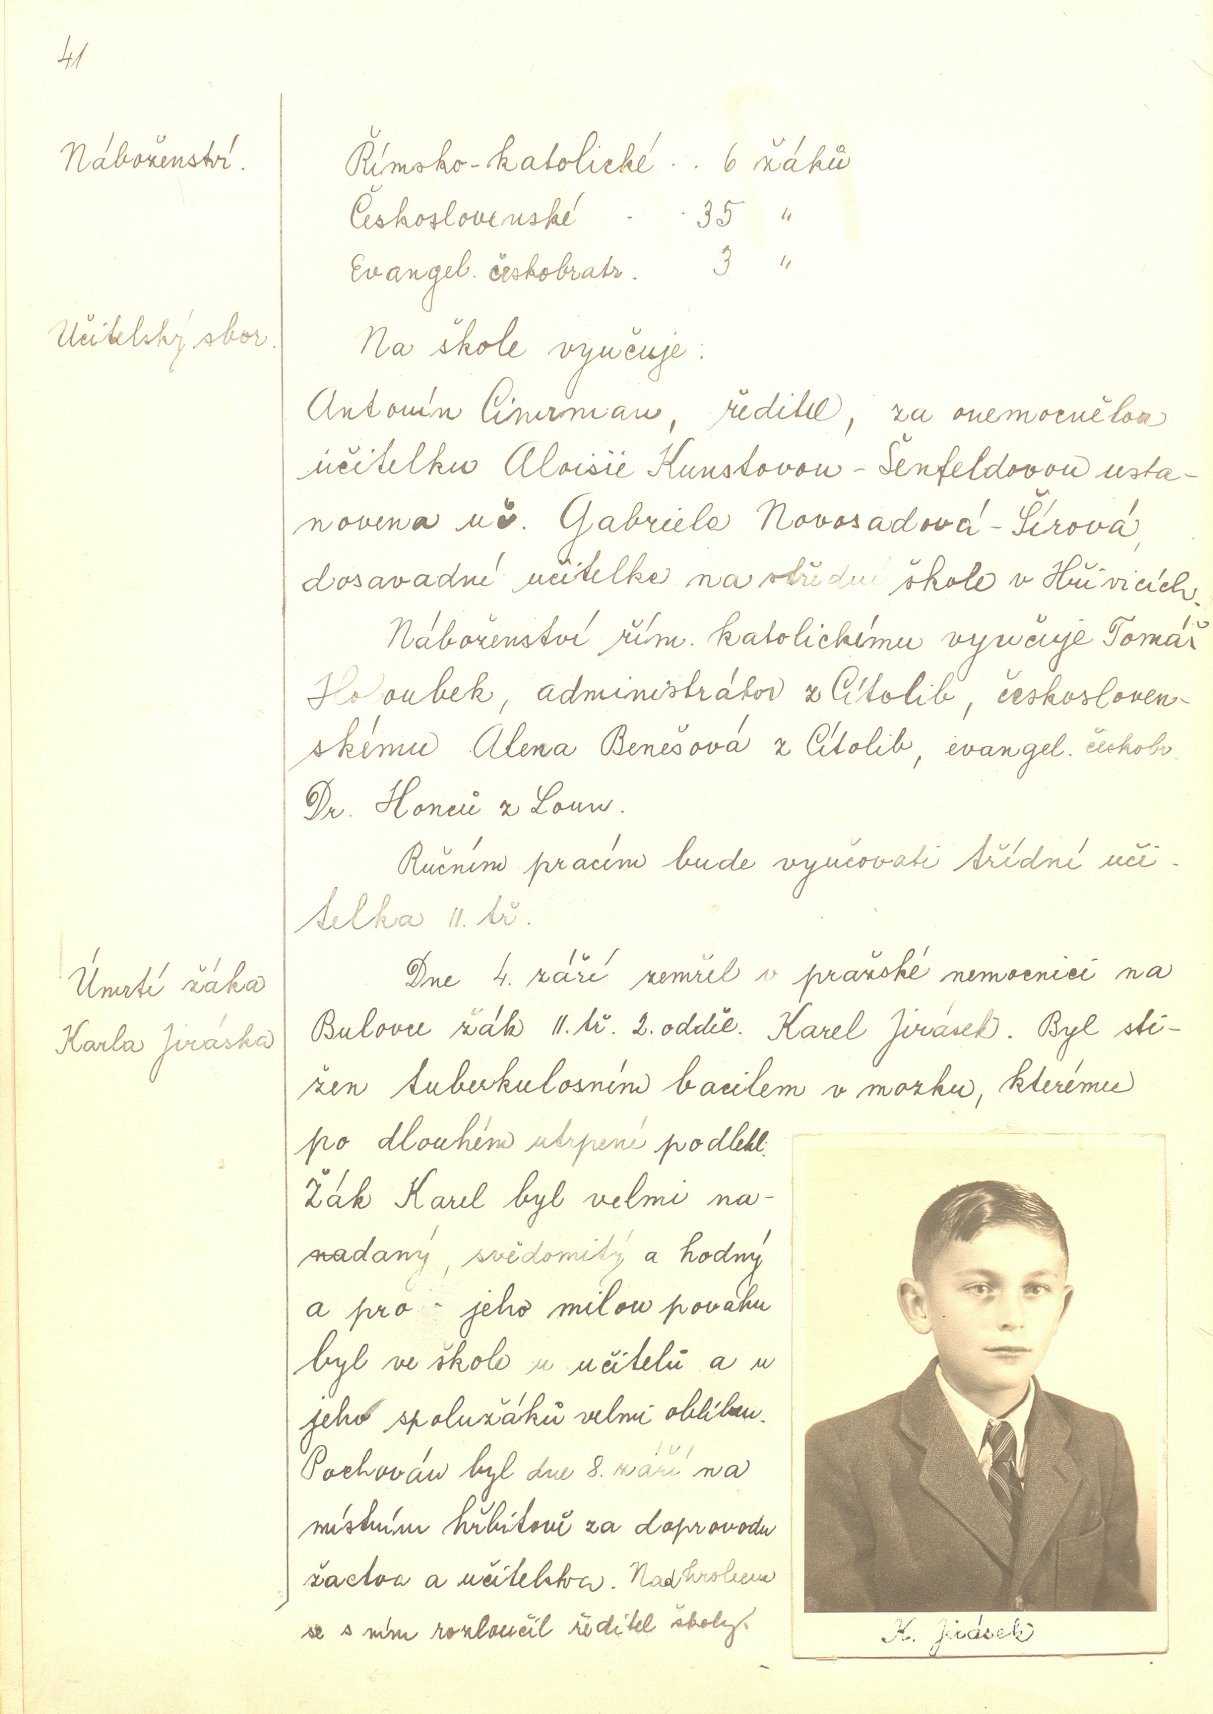 41
Náboženství.
Římsko-katolické . . 6 žáků
Československé . . 35 "
Evangel. českobratr. 3 "
Učitelský sbor.
Na škole vyučuje:
Antonín Cimrman, ředitel, za onemocnělou
učitelku Aloisii Kunstovou-Šenfeldovou usta-
novena uč. Gabriela Novosadová-Šírová,
dosavadní učitelka na střední škole v Hřivicích.
Náboženství řím. katolickému vyučuje Tomáš
Holoubek, administrátor z Cítolib, českosloven-
skému Alena Benešová z Cítolib, evangel. českobr.
Dr. Honců z Loun.
Ručním pracím bude vyučovati třídní uči-
telka II. tř.
Úmrtí žáka
Karla Jiráska
Dne 4. září zemřel v pražské nemocnici na
Bulovce žák II. tř. 2. odděl. Karel Jirásek. Byl sti-
žen tuberkulosním bacilem v mozku, kterému
po dlouhém utrpení podlehl.
Žák Karel byl velmi na-
nadaný, svědomitý a hodný
a pro - jeho milou povahu
byl ve škole u učitelů a u
jeho spolužáků velmi oblíben.
Pochován byl dne 8. září na
místním hřbitově za doprovodu
žactva a učitelstva. Nad hrobem
se s ním rozloučil ředitel školy.
K. Jirásek